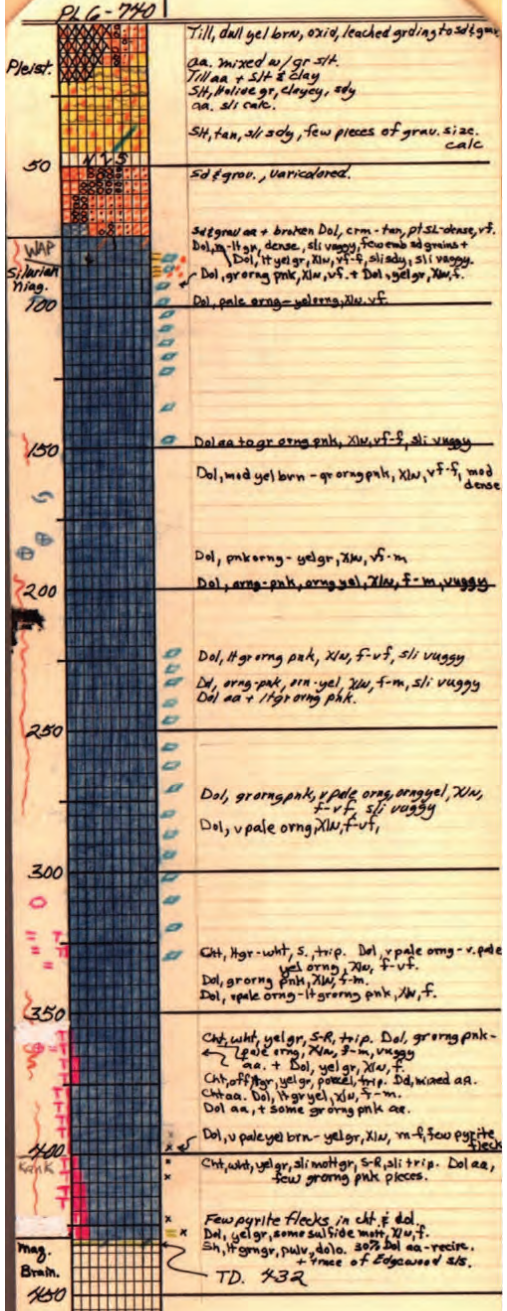 PLG-740
Till, dull yel brn, oxid, leached grding to sd & grav.
Pleist.
aa. mixed w/ gr slt.
Till aa + slt & clay
Slt, clayey, sdy
aa. sli calc.
Slt, tan, sli sdy, few pieces of grav. size.
calc
50
Sd & grav., varicolored.
Sd & grav aa + broken Dol, crm-tan, pt SL-dense, vf.
WAP
Dol, m-lt gr, dense, sli vuggy, few emb sd grains +
Silurian
Dol, lt yel gr, XlN, vf-f, sli sdy, sli vuggy.
Niag.
Dol, gr orng pnk, XlN, vf. + Dol, yel gr, XlN, f.
100
Dol, pale orng-yel orng, XlN, vf.
150
Dol aa to gr orng pnk, XlN, vf-f, sli vuggy
Dol, mod yel brn - gr orng pnk, XlN, vf-f, mod
dense
Dol, pnk orng - yel gr, XlN, vf-m
200
Dol, orng-pnk, orng yel, XlN, f-m, vuggy
Dol, lt gr orng pnk, XlN, f-vf, sli vuggy
Dol, orng-pnk, orn-yel, XlN, f-m, sli vuggy
Dol aa + lt gr orng pnk.
250
Dol, gr orng pnk, v pale orng, orng yel, XlN,
f-vf, sli vuggy
Dol, v pale orng, XlN, f-vf,
300
Cht, lt gr-wht, S., trip. Dol, v pale orng - v. pale
yel orng, XlN, f-vf.
Dol, gr orng pnk, XlN, f-m.
Dol, v pale orng-lt gr orng pnk, XlN, f.
350
Cht, wht, yel gr, S-R, trip. Dol, gr orng pnk -
pale orng, XlN, f-m, vuggy
aa. + Dol, yel gr, XlN, f.
Cht, off/lt gr, yel gr, porcel, trip. Dol, mixed aa.
Cht aa. Dol, lt gr yel, XlN, f-m.
Dol aa, + some gr orng pnk aa.
Dol, v pale yel brn - yel gr, XlN, m-f, few pyrite
flecks
400
KanK
Cht, wht, yel gr, sli mott gr, S-R, sli trip. Dol aa,
few gr orng pnk pieces.
Few pyrite flecks in cht & dol.
Dol, yel gr, some sulfide mott, XlN, f.
Maq.
Sh, lt grn gr, pulv, dolo. 30% Dol aa-recirc.
Brain.
+ trace of Edgewood sls.
TD. 432
450